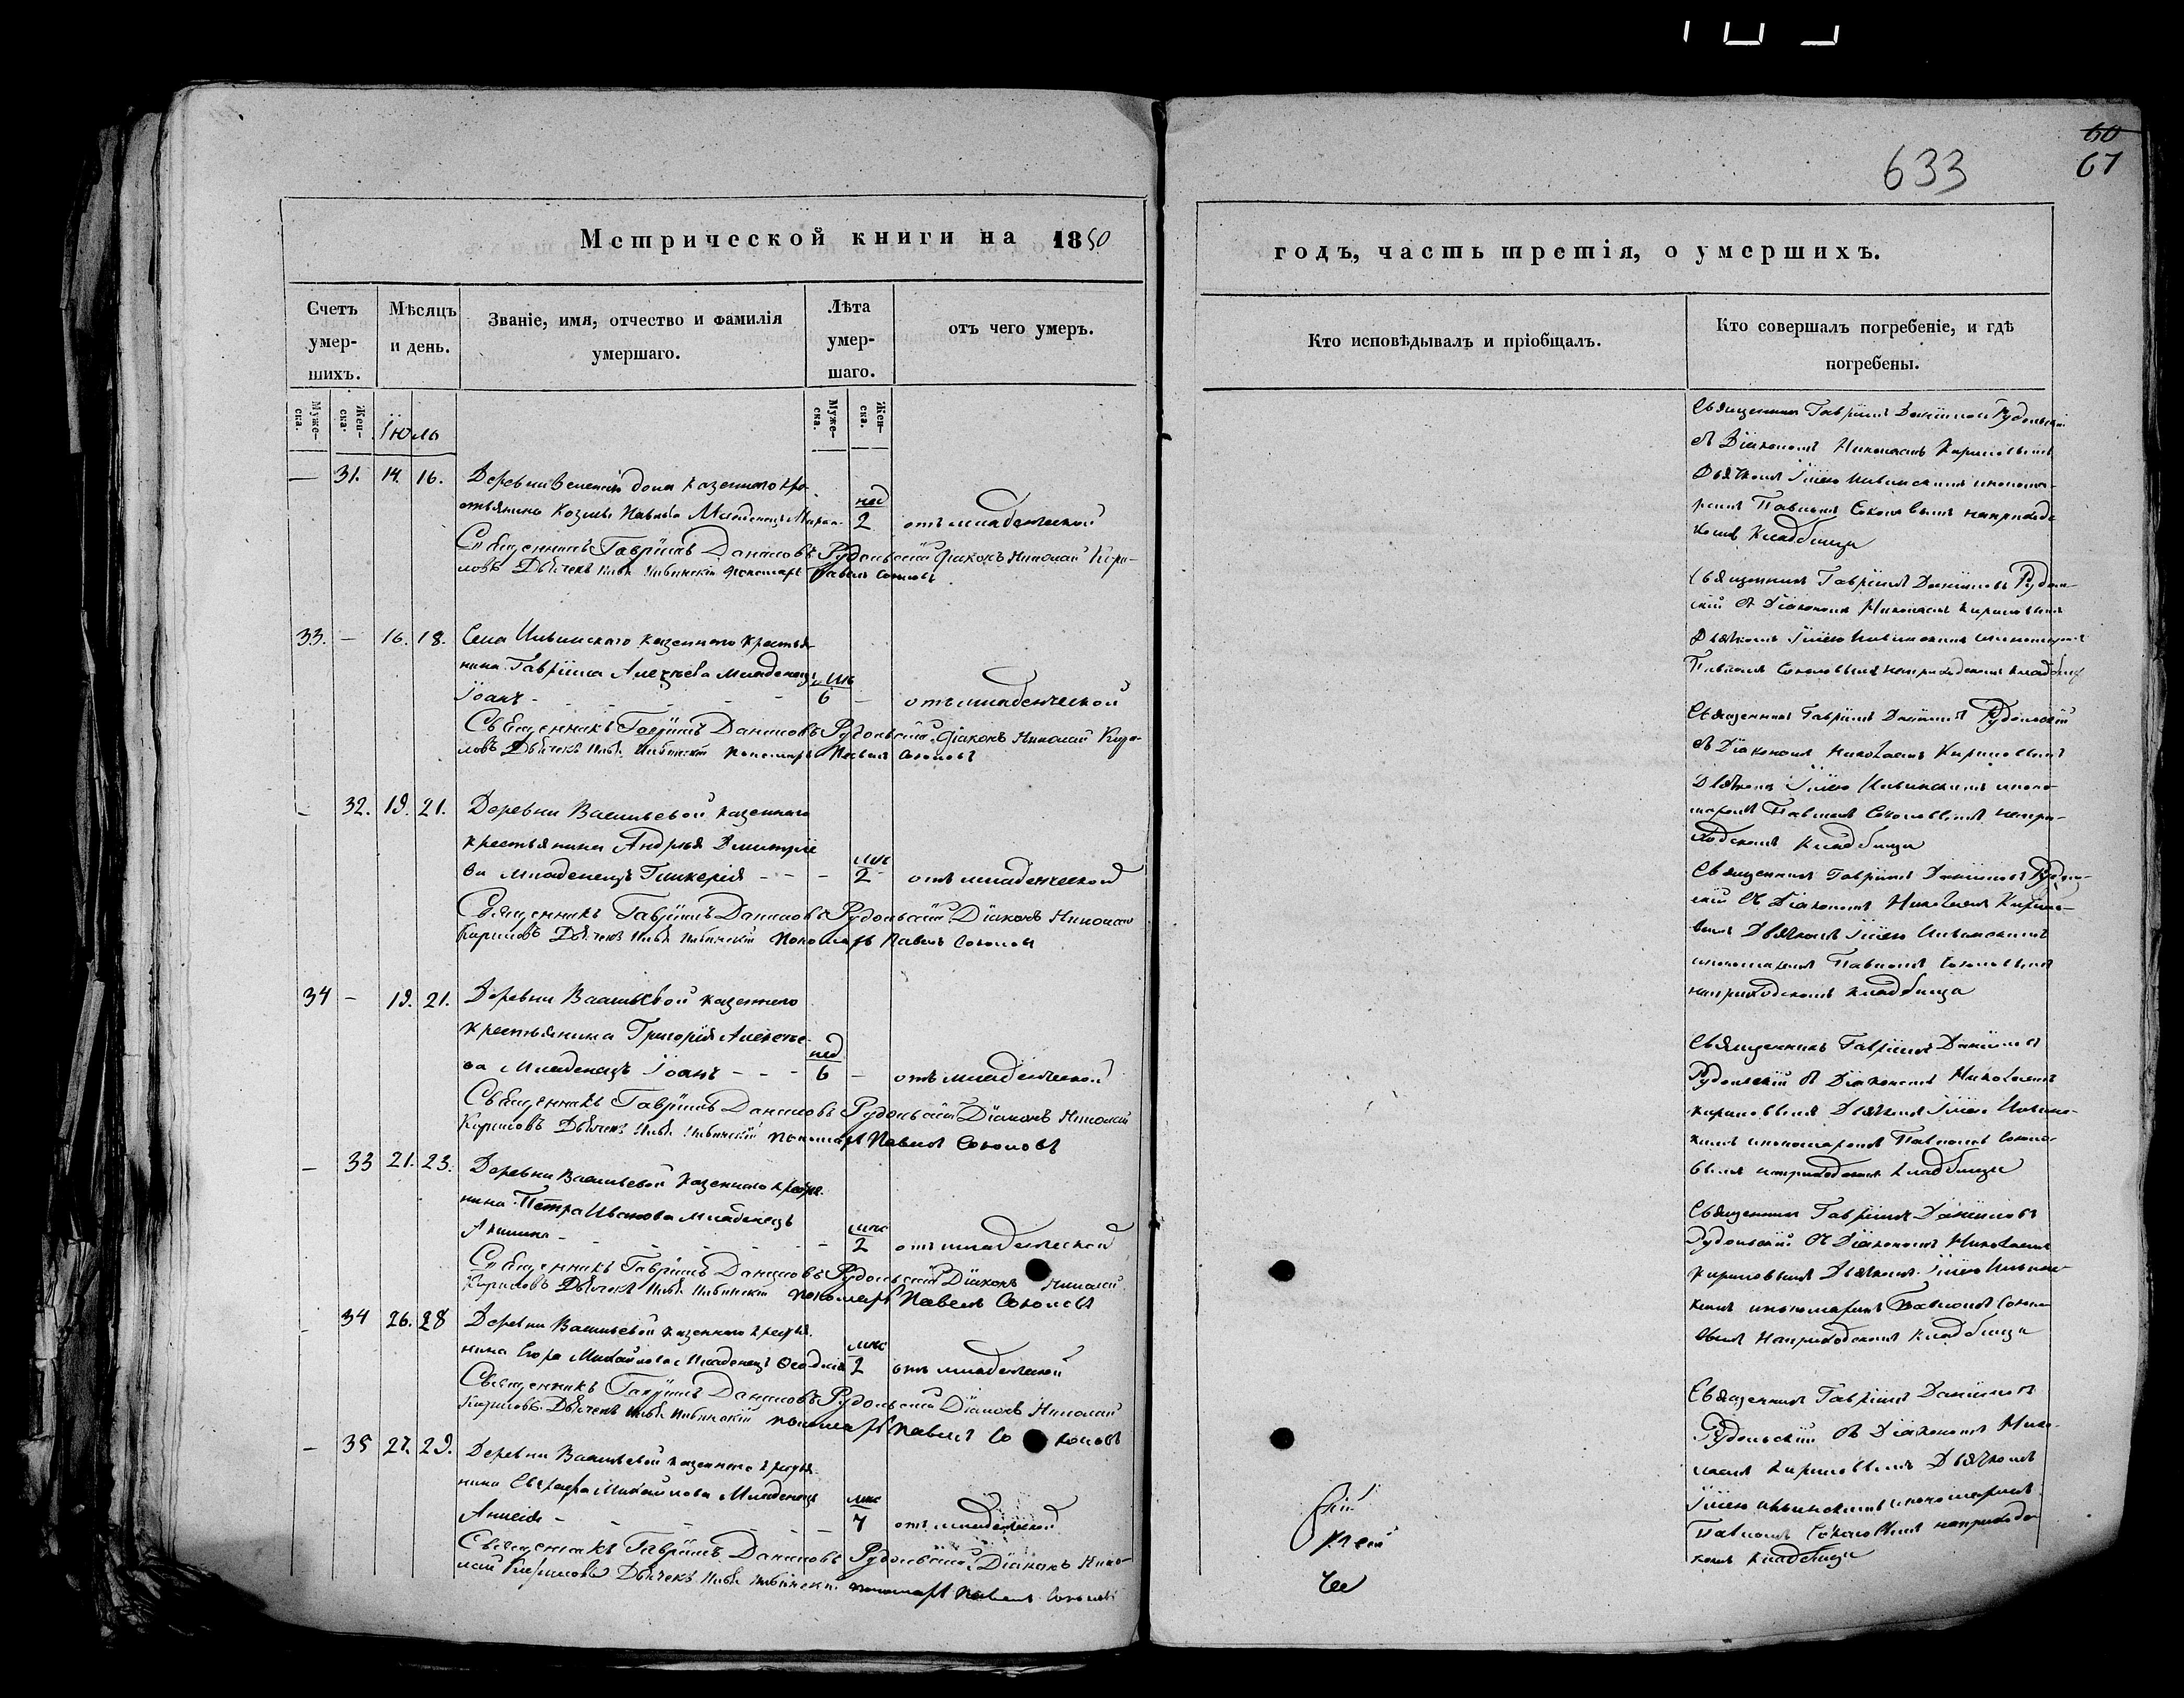 60
67
633
Метрической книги на 1850
годъ, часть третія, о умершихъ.
Счетъ умер-шихъ.
Мѣсяцъ и день.
Званіе, имя, отчество и фамилія умершаго.
Лѣта умер-шаго.
отъ чего умеръ.
Кто исповѣдывалъ и пріобщалъ.
Кто совершалъ погребеніе, и гдѣ погребены.
Муже-ска.
Жен-ска.
Муже-ска.
Жен-ска.
Іюль
— 31. 14. 16. Деревни казеннаго кре-
стьянина Козмы Павлова Младенецъ
нед 2 отъ младенческой
Священникъ Гавріилъ Даниловъ Рудольскій Діаконъ Николай Кири-
ловъ Дьячекъ Ильинскій Пономарь Павелъ Соколовъ
Священникъ Гавріилъ Даніиловъ Рудольскій
съ Діакономъ Николаемъ Кириловымъ
Дьячкомъ Ильинскимъ и понома-
ремъ Павломъ Соколовымъ на приход-
комъ Кладбище
33. — 16. 18. Села Ильинскаго казеннаго крестья-
нина Гавріила Алексѣева младенецъ
Іоанъ — мѣс 6 — отъ младенческой
Священникъ Гавріилъ Даниловъ Рудольскій Діаконъ Николай Кири-
ловъ Дьячекъ Ильинскій Пономарь Павелъ Соколовъ
Священникъ Гавріилъ Даніиловъ Рудоль-
скій съ Діакономъ Николаемъ Кириловымъ
Дьячкомъ Ильинскимъ и пономаремъ
Павломъ Соколовымъ на приходскомъ кладбище
— 32. 19. 21. Деревни Васильевой казеннаго
крестьянина Андрея Дмитріе-
ва младенецъ Гликерія — мѣс 2 отъ младенческой
Священникъ Гавріилъ Даниловъ Рудольскій Діаконъ Николай
Кириловъ Дьячекъ Ильинскій Пономарь Павелъ Соколовъ
Священникъ Гавріилъ Даніиловъ Рудольскій
съ Діакономъ Николаемъ Кириловымъ
Дьячкомъ Ильинскимъ и поно-
маремъ Павломъ Соколовымъ на при-
ходскомъ Кладбище
34 — 19. 21. Деревни Васильевой казеннаго
крестьянина Григорія Алексѣе-
ва Младенецъ Іоанъ — нед 6 — отъ младенческой
Священникъ Гавріилъ Даниловъ Рудольскій Діаконъ Николай
Кириловъ Дьячекъ Ильинскій Пономарь Павелъ Соколовъ
Священникъ Гавріилъ Даніиловъ Рудоль-
скій съ Діакономъ Николаемъ Кирило-
вымъ Дьячкомъ Ильинскимъ
и пономаремъ Павломъ Соколовымъ
на приходскомъ кладбище
— 33 21. 23. Деревни Васильевой казеннаго крестья-
нина Петра Иванова младенецъ
Акилина — мѣс 2 отъ младенческой
Священникъ Гавріилъ Даниловъ Рудольскій Діаконъ Николай
Кириловъ Дьячекъ Ильинскій Пономарь Павелъ Соколовъ
Священникъ Гавріилъ Даніиловъ
Рудольскій съ Діакономъ Николаемъ
Кириловымъ Дьячкомъ Ильинс-
кимъ и пономаремъ Павломъ Соколо-
вымъ на приходскомъ кладбище
— 34 26. 28 Деревни Васильевой казеннаго крестья-
нина Егора Михайлова Младенецъ
мѣс 2 отъ младенческой
Священникъ Гавріилъ Даниловъ Рудольскій Діаконъ Николай
Кириловъ Дьячекъ Ильинскій Пономарь Павелъ Соколовъ
Священникъ Гавріилъ Даніиловъ
Рудольскій съ Діакономъ Николаемъ
Кириловымъ Дьячкомъ Ильинс-
кимъ и пономаремъ Павломъ Соколо-
вымъ на приходскомъ кладбище
— 35 27. 29. Деревни Васильевой казеннаго крестья-
нина Михайлова Младенецъ
— мѣс 7 отъ младенческой
Священникъ Гавріилъ Даниловъ Рудольскій Діаконъ Нико-
лай Кириловъ Дьячекъ Ильинскій пономарь Павелъ Соколовъ
Священникъ Гавріилъ Даніиловъ
Рудольскій съ Діакономъ Нико-
лаемъ Кириловымъ Дьячкомъ
Ильинскимъ и пономаремъ
Павломъ Соколовымъ на приходс-
комъ кладбище